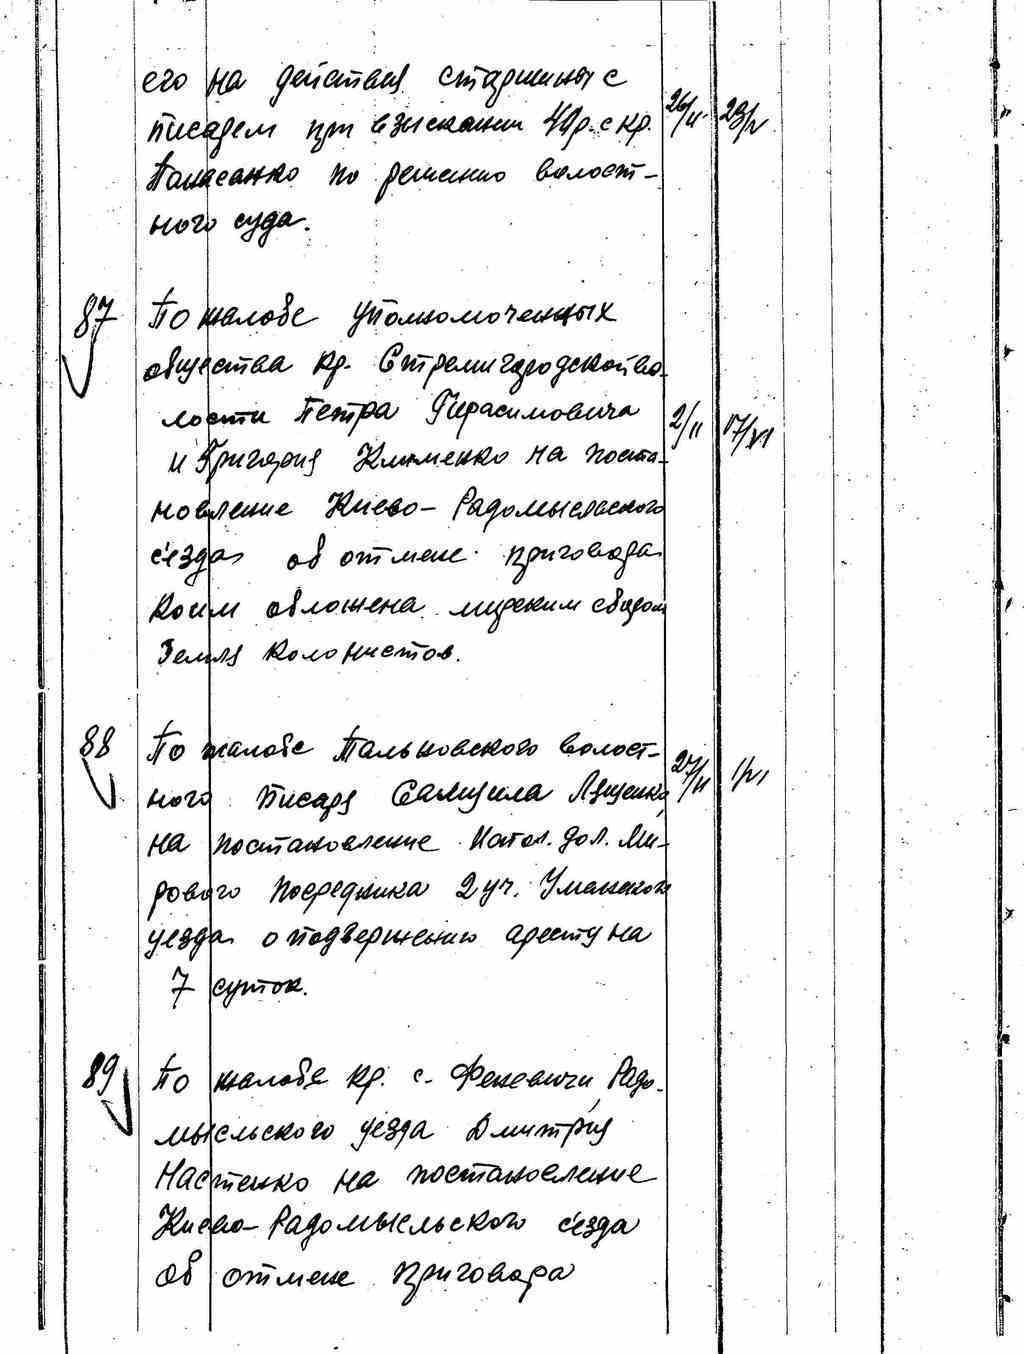 его на действия старшины с
писарем при взыскании 40р. с кр. 26/II 23/V
Панасанко по решению волост-
ного суда.
87 По жалобе уполномоченных
общества кр. Стремигородской во-
лости Петра Герасимовича 2/II 17/VI
и Григория Клименко на поста-
новление Киево-Радомысльского
с'езда об отмене приговора
коим обложена мирским сбором
земля колонистов.
88 По жалобе Тальновского волост-
ного писаря Самуила Луценко 27/II 1/VI
на постановление Испол. дол. Ми-
рового Посредника 2 уч. Уманского
уезда о подвержению аресту на
7 суток.
89 По жалобе кр. с. Феневичи, Радо-
мысльского уезда Дмитрия
Настенко на постановление
Киево-Радомысльского с'езда
об отмене приговора